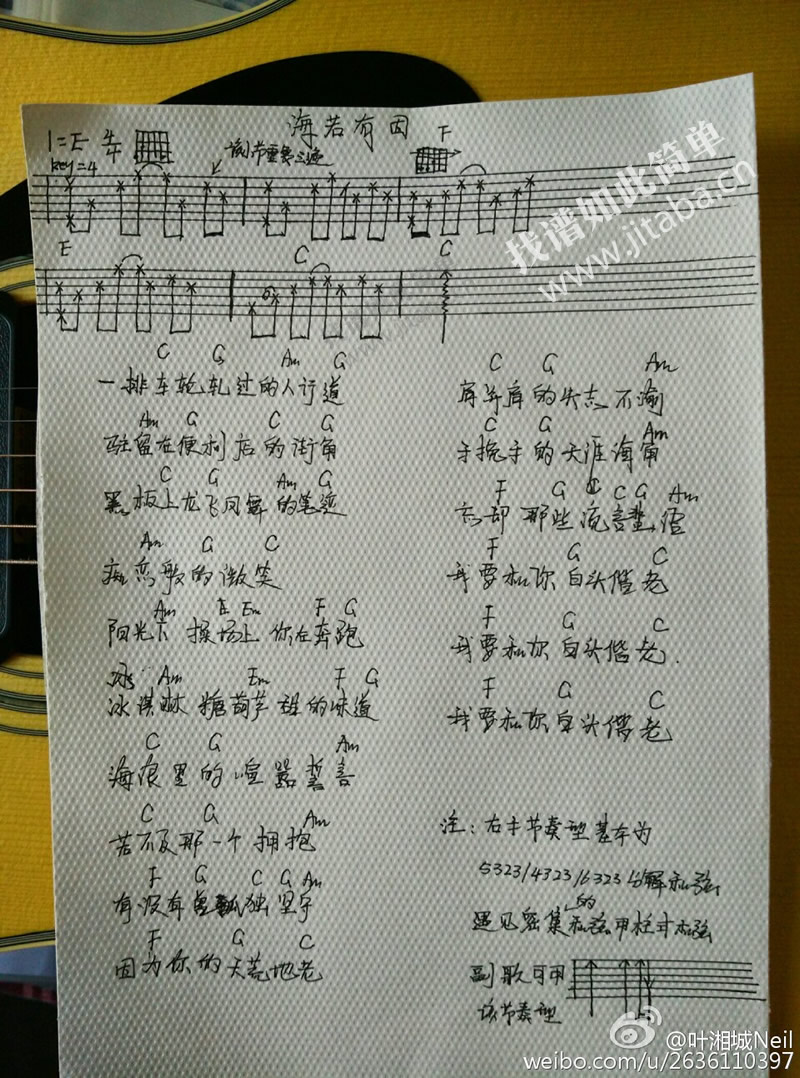 海若有因
1=E 4/4
key=4
该节重复三遍
F
E C C
C G Am G
一排车轮轧过的人行道
Am G C G
驻留在便利店的街角
C G Am G
黑板上龙飞凤舞的笔迹
Am G C
痴恋歌的微笑
Am E Em F G
阳光下 操场上 你在奔跑
Am Em F G
冰淇淋 糖葫芦 甜的味道
C G Am
海浪里的喧嚣誓言
C G Am
若不及那一个拥抱
F G C G Am
有没有 孤独坚守
F G C
因为你的天荒地老
C G Am
肩并肩的矢志不渝
C G Am
手挽手的天涯海角
F G C C G Am
忘却那些流言蜚语
F G C
我要和你白头偕老
F G C
我要和你白头偕老.
F G C
我要和你白头偕老
注:右手节奏型基本为
5323/4323/6323分解和弦
遇见密集的和弦用柱式和弦
副歌可用
该节奏型
找谱如此简单
www.jitaba.cn
@叶湘城Neil
weibo.com/u/2636110397